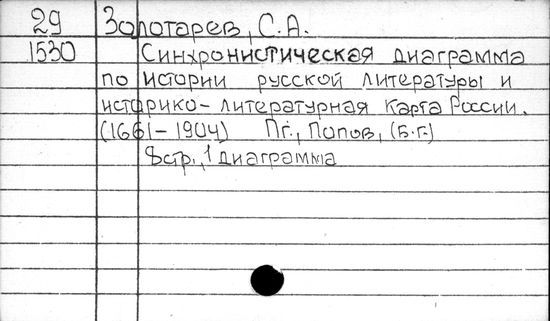 29 Золотарев, С.А.
1530 Синхронистическая диаграмма
по истории русской литературы и
историко-литературная карта России.
(1661-1904) Пг., Попов, (б.г.)
8стр., 1 диаграмма